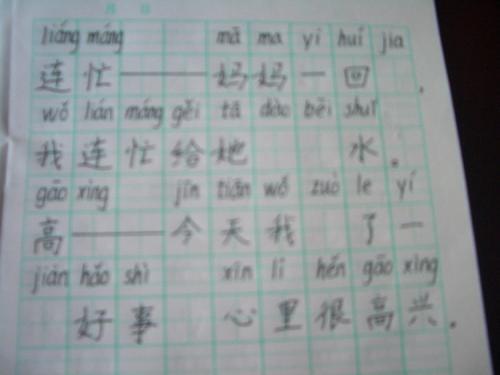 liáng máng mā ma yí huí jia
连忙——妈妈一回.
wǒ lián máng gěi tā dào bēi shuǐ
我连忙给她 水。
gāo xìng jīn tiān wǒ zuò le yí
高——今天我 了一
jiàn hǎo shì xīn lǐ hěn gāo xìng
好事 心里很高兴.